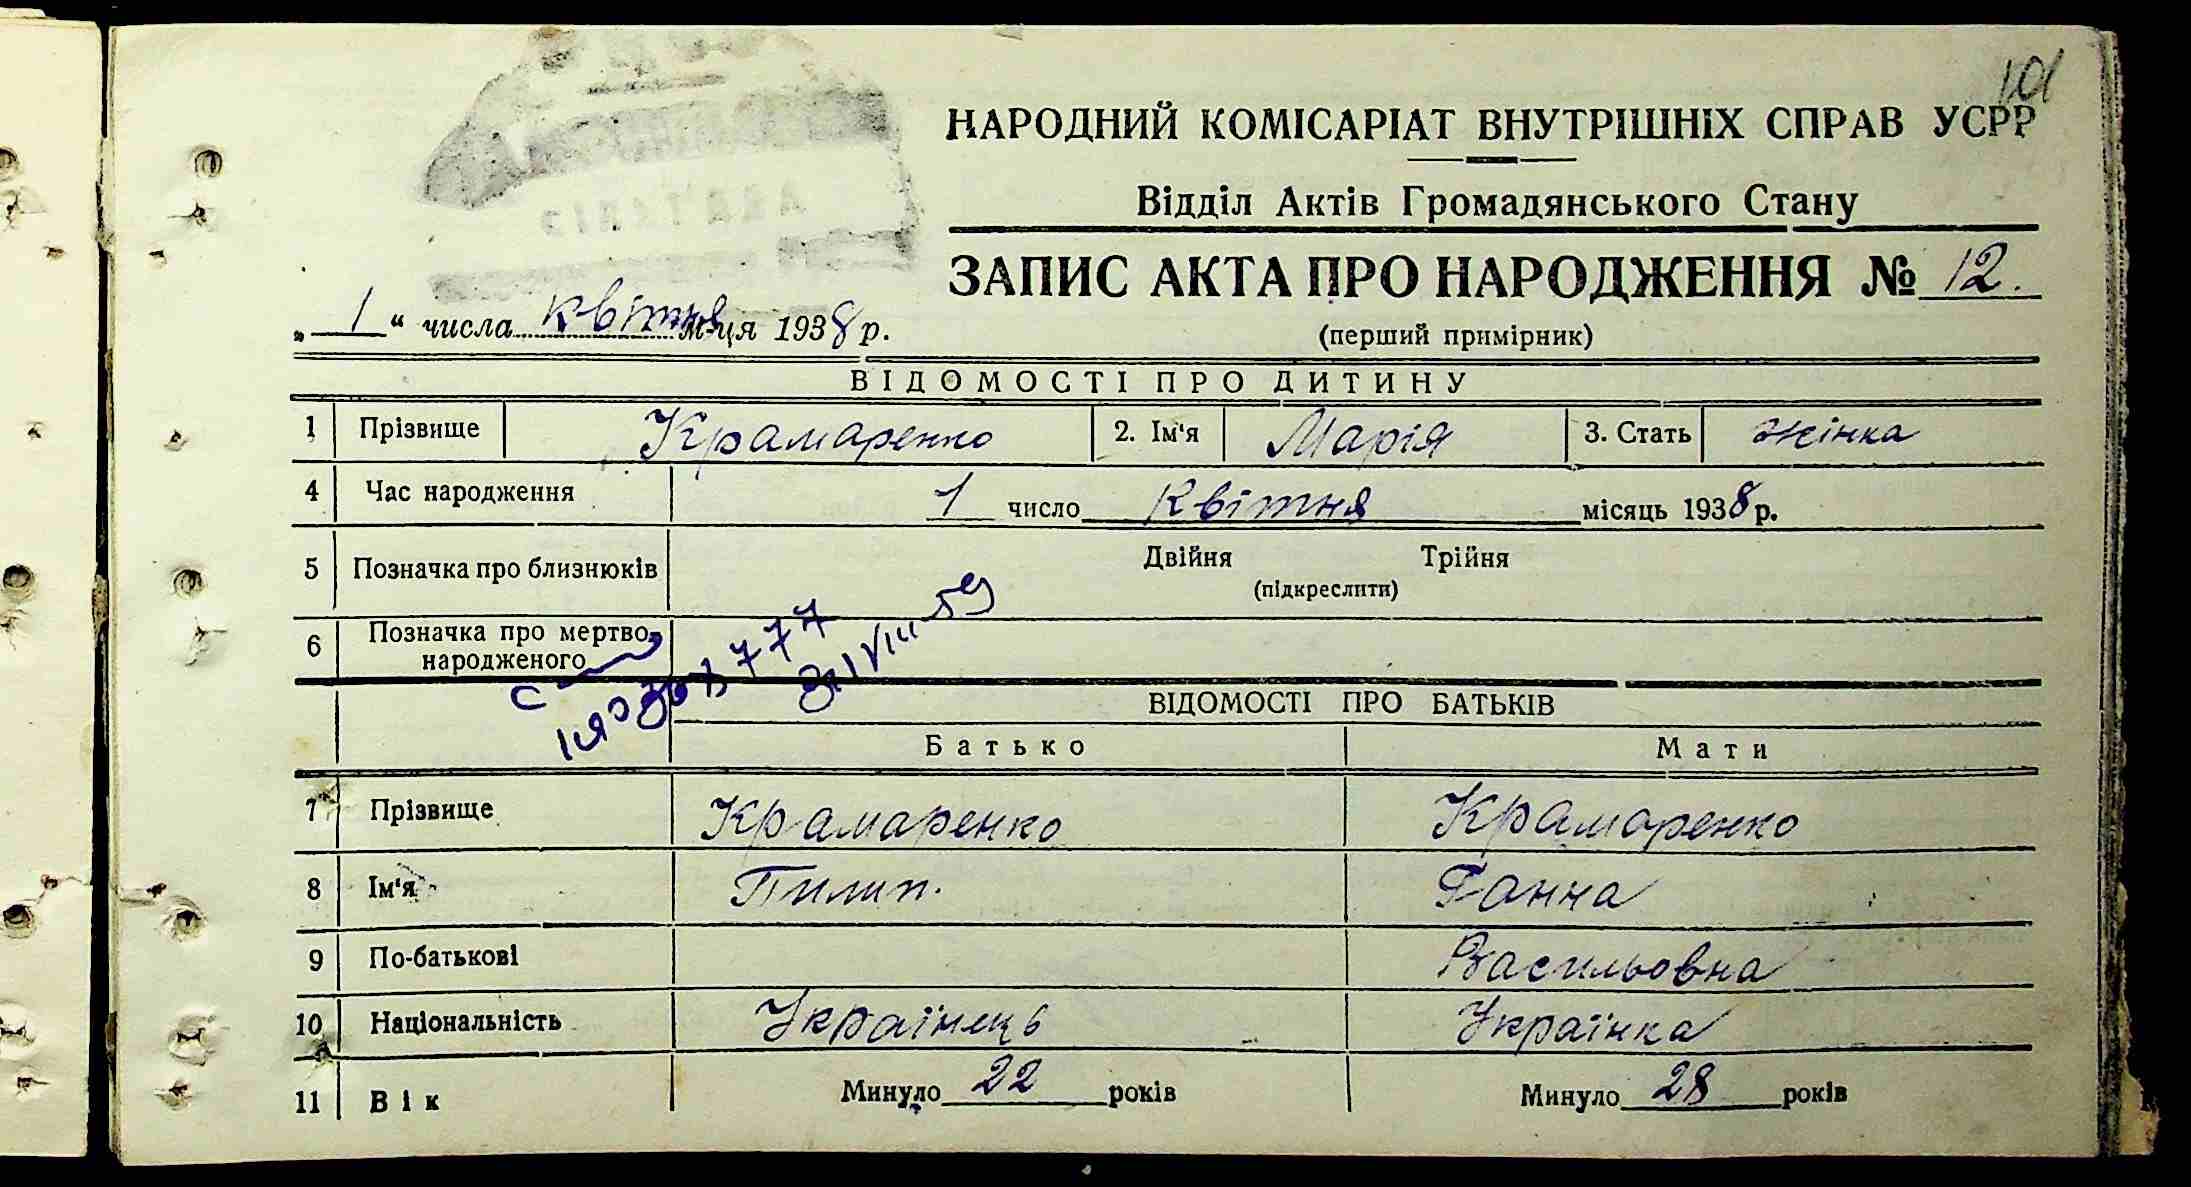 101
НАРОДНИЙ КОМІСАРІАТ ВНУТРІШНІХ СПРАВ УСРР
Відділ Актів Громадянського Стану
ЗАПИС АКТА ПРО НАРОДЖЕННЯ № 12.
(перший примірник)
„ 1 “ числа квітня м-ця 1938 р.
ВІДОМОСТІ ПРО ДИТИНУ
1 Прізвище Крамаренко 2. Ім'я Марія 3. Стать жінка
4 Час народження 1 число Квітня місяць 1938 р.
5 Позначка про близнюків Двійня Трійня
(підкреслити)
6 Позначка про мертво-
народженого
ВІДОМОСТІ ПРО БАТЬКІВ
Батько Мати
7 Прізвище Крамаренко Крамаренко
8 Ім'я Пилип. Ганна
9 По-батькові Васильовна
10 Національність Українець Українка
11 Вік Минуло 22 років Минуло 28 років